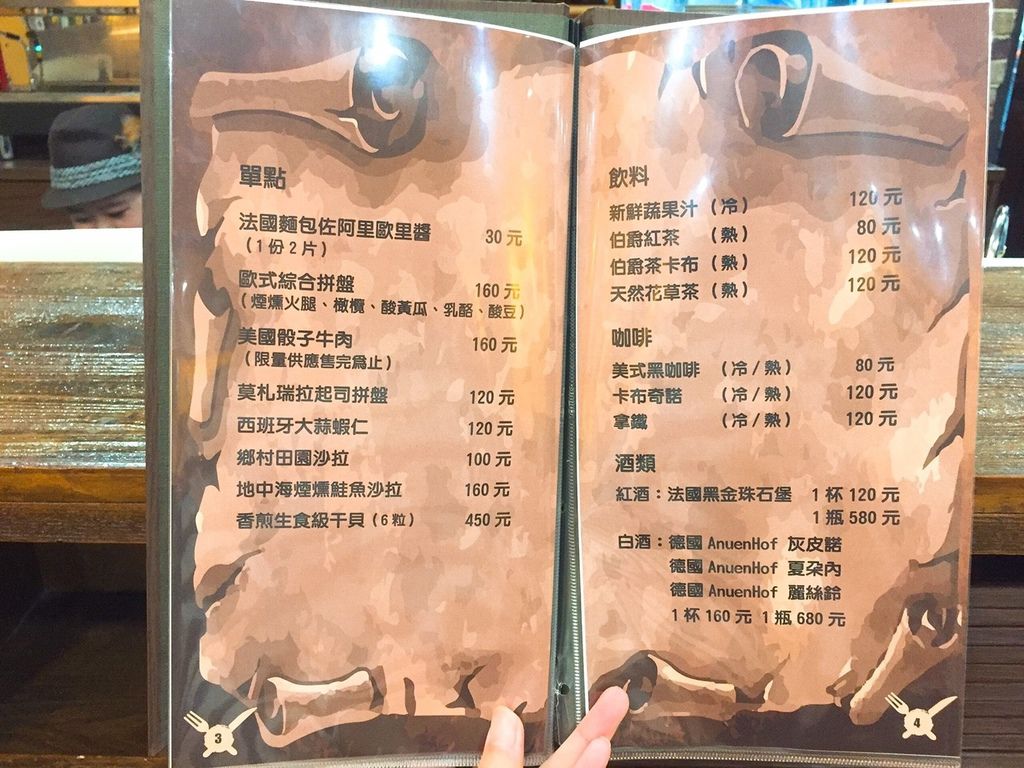 單點
法國麵包佐阿里歐里醬 30 元
（1 份 2 片）
歐式綜合拼盤 160 元
（煙燻火腿、橄欖、酸黃瓜、乳酪、酸豆）
美國骰子牛肉 160 元
（限量供應售完為止）
莫札瑞拉起司拼盤 120 元
西班牙大蒜蝦仁 120 元
鄉村田園沙拉 100 元
地中海煙燻鮭魚沙拉 160 元
香煎生食級干貝（6 粒） 450 元
3
飲料
新鮮蔬果汁（冷） 120 元
伯爵紅茶 （熱） 80 元
伯爵茶卡布（熱） 120 元
天然花草茶（熱） 120 元
咖啡
美式黑咖啡 （冷 / 熱） 80 元
卡布奇諾 （冷 / 熱） 120 元
拿鐵 （冷 / 熱） 120 元
酒類
紅酒：法國黑金珠石堡 1 杯 120 元
1 瓶 580 元
白酒：德國 AnuenHof 灰皮諾
德國 AnuenHof 夏朶內
德國 AnuenHof 麗絲鈴
1 杯 160 元 1 瓶 680 元
4